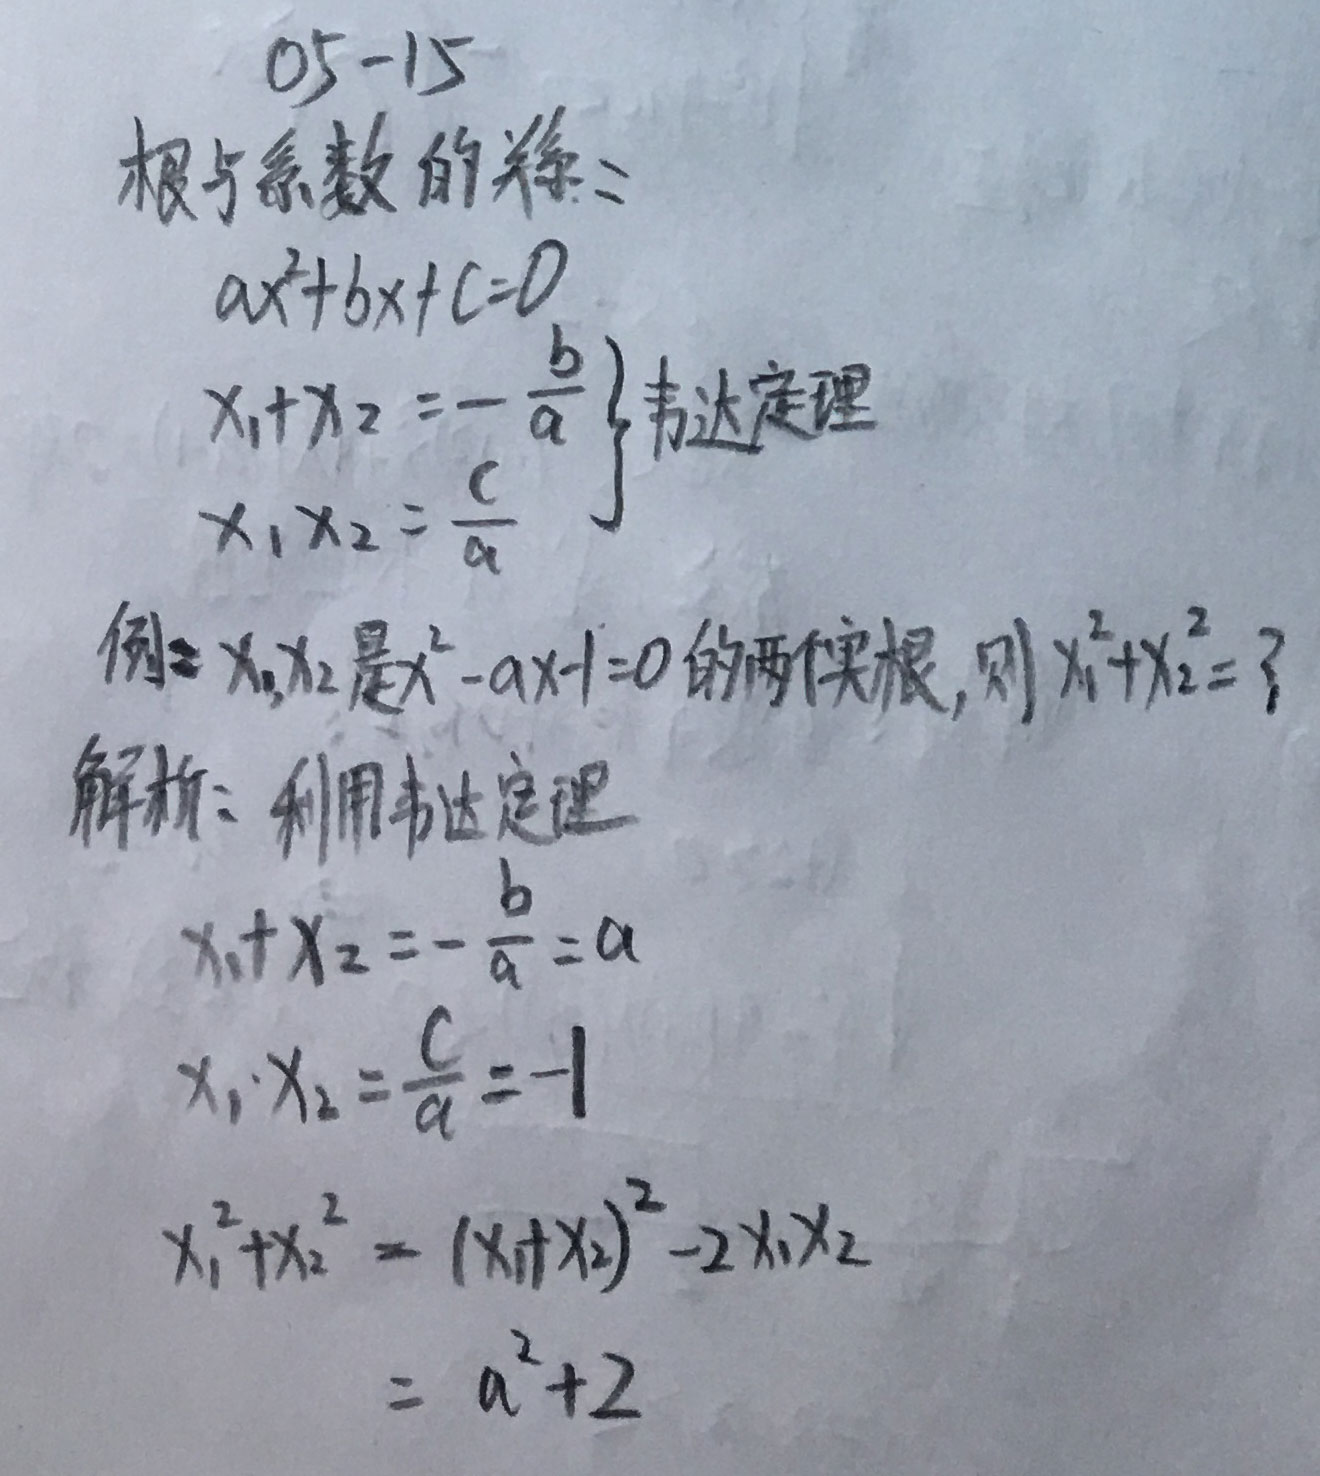 05-15
根与系数的关系:
ax²+bx+c=0
x₁+x₂=-b/a } 韦达定理
x₁x₂=c/a
例: x₁,x₂是x²-ax-1=0的两个实根,则x₁²+x₂²=?
解析: 利用韦达定理
x₁+x₂=-b/a=a
x₁·x₂=c/a=-1
x₁²+x₂²=(x₁+x₂)²-2x₁x₂
=a²+2